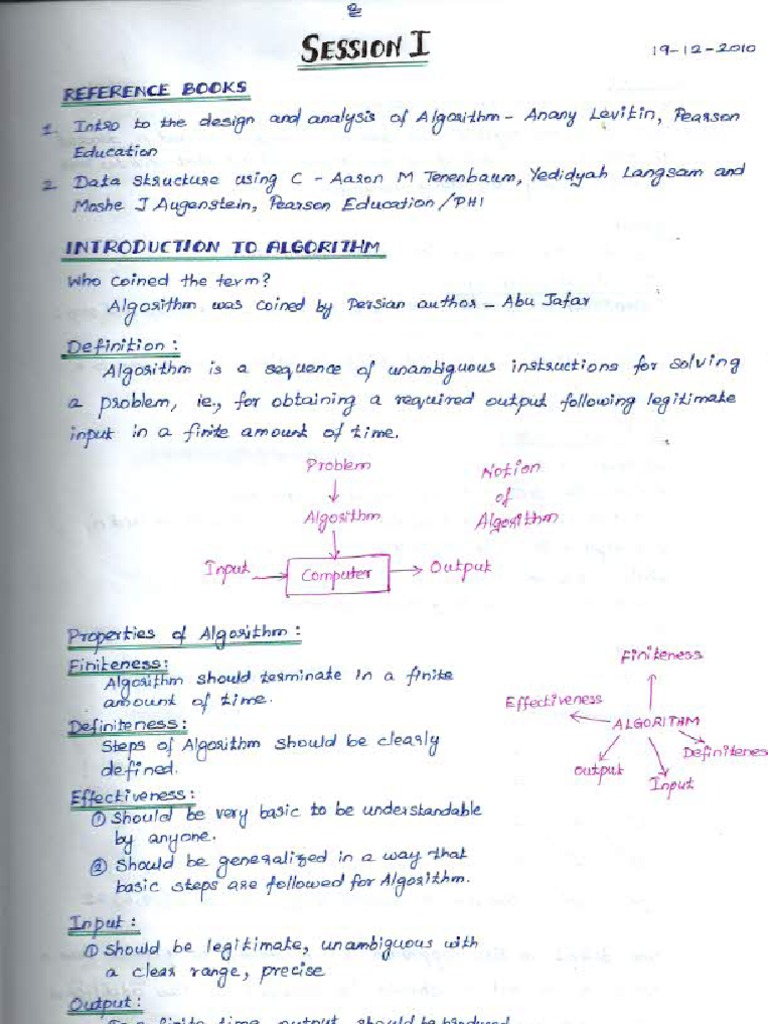 SESSION I
19-12-2010
REFERENCE BOOKS
1. Intro to the design and analysis of Algorithm - Anany Levitin, Pearson
Education
2. Data structure using C - Aaron M Tenenbaum, Yedidyah Langsam and
Moshe J Augenstein, Pearson Education/PHI
INTRODUCTION TO ALGORITHM
Who coined the term?
Algorithm was coined by Persian author - Abu Jafar
Definition:
Algorithm is a sequence of unambiguous instructions for solving
a problem, ie., for obtaining a required output following legitimate
input in a finite amount of time.
Problem
Algorithm
Input
Computer
Output
Notion
of
Algorithm
Properties of Algorithm:
Finiteness:
Algorithm should terminate in a finite
amount of time.
Definiteness:
Steps of Algorithm should be clearly
defined.
Effectiveness:
① Should be very basic to be understandable
by anyone.
② Should be generalized in a way that
basic steps are followed for Algorithm.
Finiteness
Effectiveness
ALGORITHM
Definitenes
Output
Input
Input:
① Should be legitimate, unambiguous with
a clear range, precise
Output:
In a finite time, output should be produced